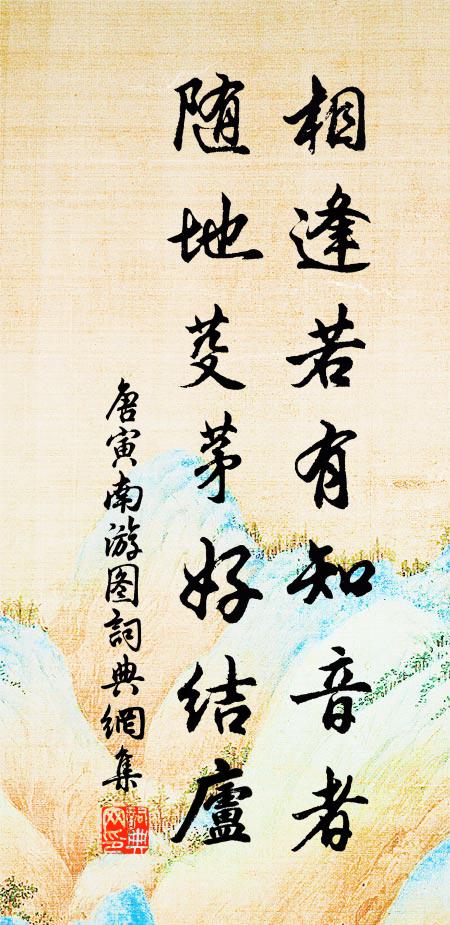 相逢若有知音者
随地芟茅好结廬
唐寅南游图詞典網集
詞典
网印